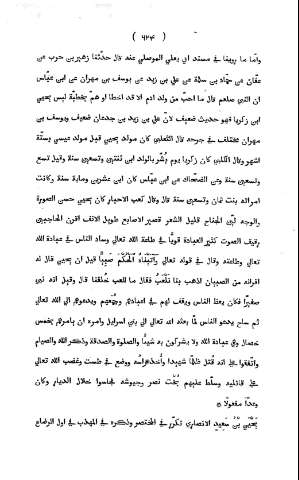 ( ٦٢٤ )
وأما ما رويناه في مسند ابي يعلى الموصلي عنه قال حدّثنا زهير بن حرب عن
عفّان عن حمّاد بن سلمة عن علي بن زيد عن يوسف بن مهران عن ابن عبّاس
ان النبي صلعم قال ما احد من ولد ادم الا قد اخطا او همّ بخطيّة ليس يحيى
ابن زكريا فهو حديث ضعيف لانّ علي بن زيد بن جدعان ضعيف ويوسف بن
مهران مختلف في جرحه قال الثعلبي كان مولد يحيى قبل مولد عيسى بستّة
اشهر وقال الكلبي كان زكريا يوم بُشّر بالولد ابن ثنتين وتسعين سنة وقيل تسع
وتسعين سنة وعن الضحّاك عن ابن عبّاس كان ابن عشرين وماية سنة وكانت
امراته بنت ثمان وتسعين سنة قال وقال كعب الاحبار كان يحيى حسن الصورة
والوجه ليّن الجناح قليل الشعر قصير الاصابع طويل الانف اقرن الحاجبين
رقيق الصوت كثير العبادة قويًّا في طاعة الله تعالى وساد الناس في عبادة الله
تعالى وطاعته وقال في قوله تعالى وَآتَيْنَاهُ ٱلْحُكْمَ صَبِيًّا قيل ان يحيى قال له
اقرانه من الصبيان اذهب بنا نَلْعَبُ فقال ما للعب خُلقنا قال وقيل انه نبي
صغيرًا فكان يعظ الناس ويقف لهم في اعيادهم وجُمَعهم ويدعوهم الى الله تعالى
ثم ساح يدعو الناس لمّا بعثه الله تعالى الى بني اسرايل وامره ان يامرهم بخمس
خصال وفي عبادة الله ولا يشركون به شيئًا والصلوة والصدقة وذكر الله والصيام
واتّفقوا على انه قُتل ظلمًا شهيدًا وأخذ راسه ووضع في طست وغضب الله تعالى
على قاتليه وسلّط عليهم بُخْت نصر وجيوشه فجاسوا خلال الديار وكان
وعدًا مفعولًا ٭
يَحْيَى بْنُ سَعِيدٍ الانصاري تكرّر في المختصر وذكره في المهذب في اول الرضاع